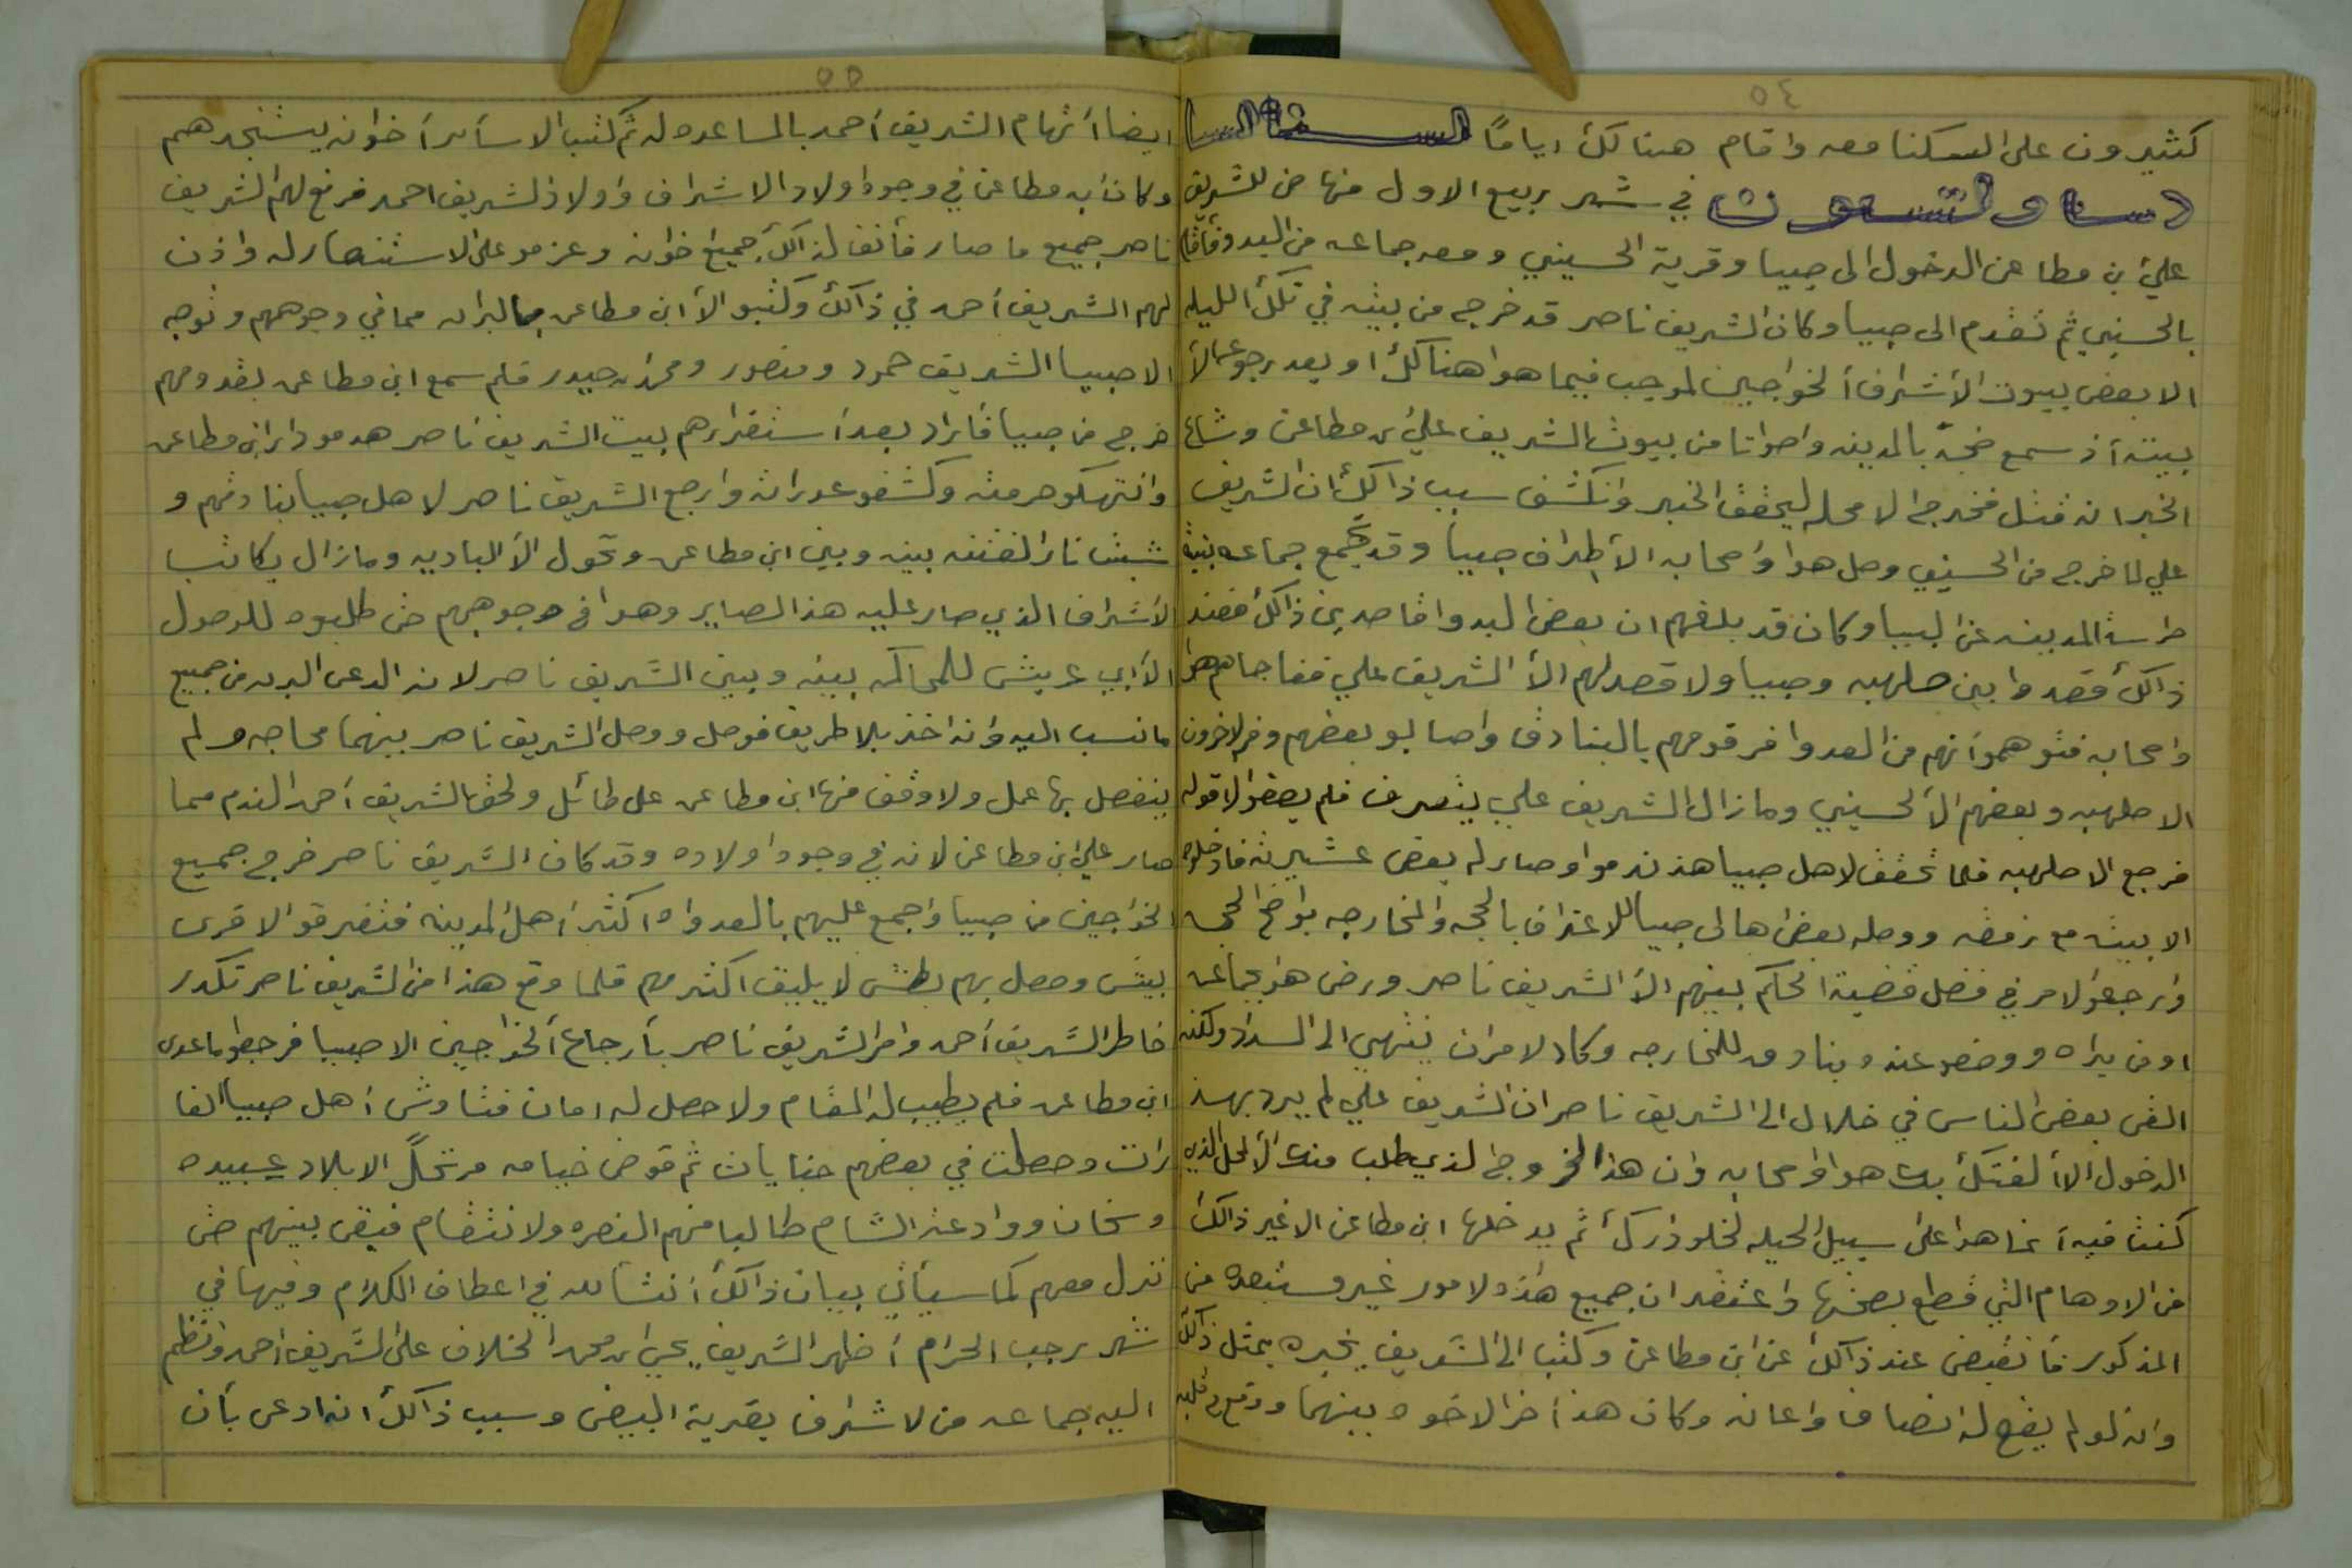 ٥٤
كثيرون على السكنا معه واقام هنالك اياماً السنة السا
دسا والتسعون في شهر ربيع الاول منها عن للشريف
علي بن مطاعن الدخول الى صبيا وقرية الحسيني ومعه جماعه من البدو فأقام
بالحسيني ثم تقدم الى صبيا وكان الشريف ناصر قد خرج من بيته في تلك الليله
الا بعض بيوت الأشراف الخواجيين لموجب فيما هوا هنالك او بعد رجوعه الأ
بيته أذ سمع ضجة بالمدينه واصواتا من بيوت الشريف علي بن مطاعن وشاع
الخبر انه قتل فخرج الا محله ليحقق الخبر وانكشف سبب ذالك ان الشريف
علي لما خرج من الحسيني وصل هوا وأصحابه الأ طراف صبيا وقد تجمع جماعه بنية
حراسة المدينه عن البيبا وكان قد بلغهم ان بعض البدوا قاصدين ذالك فعند
ذالك قعدوا بين صلهبه وصبيا ولا قصد لهم الأ الشريف علي ففاجاهم هوا
واصحابه فتوهموأ نهم من العدوا فرقومهم بالبنادق واصابو بعضهم وفر الاخرون
الا صلهبه وبعضهم الأ الحسيني ومازال الشريف علي يتصرف فلم يصغوا لا قوله
فرجع الا صلهبه فلما تحقق لاهل صبيا هذ ندموا وصار له بعض عشيرته فادخلوه
الا بيته مع رفقه ووصله بعض اهالي صبيا للاعتراف بالحجه والمخارجه بواضح الحجه
وارجعوا لامر في فصل قضية الحكم بينهم الأ الشريف ناصر ورضى هو بجماعه
اومن يراه ووضعو عنده بنادق للمخارجه وكاد لامر ان ينتهي الى السداد ولكنه
القى بعض الناس في خلال الى الشريف ناصر ان الشريف علي لم يرد بهذ
الدخول الأ الفتك بك هوا وأصحابه وان هذا الخروج الذي طلب منك الأ المحل الذي
كنت فيه أنما هوا على سبيل الحيله لخلو دارك ثم يدخلها ابن مطاعن الا غير ذالك
من الاوهام التي قطع بصحتها واعتقد ان جميع هذه لامور غير مستبعده من
المذكور فأنقبض عند ذالك عن ابن مطاعن وكتب الى الشريف يخبره بمثل ذالك
وانه لو لم يقع له انصاف واعانه وكان هذ أخر الاخوه بينهما ووقع في قلبه
٥٥
ايضا أتهام الشريف أحمد بالمساعده له ثم كتب الا سأير أخوانه يستنجدهم
وكان ابن مطاعن في وجوه اولاد الاشراف واولاد الشريف احمد فرفع لهم الشريف
ناصر جميع ما صار فأنف لذالك جميع اخوانه وعزمو على الاستنصار له واذن
لهم الشريف أحمد في ذالك وكتبو الأ ابن مطاعن بالبراه مما في وجوههم وتوجه
الا صبيا الشريف حمود ومنصور ومحمد بن حيدر فلم سمع ابن مطاعن بقدومهم
خرج من صبيا فأراد بعد أستقرارهم ببيت الشريف ناصر هدمو دار ابن مطاعن
وانتهكو حرمته وكشفو عوراته وارجع الشريف ناصر لاهل صبيا بنادقهم و
شبت نار الفتنه بينه وبين ابن مطاعن وتحول الأ الباديه ومازال يكاتب
الأشراف الذي صار عليه هذ الصاير وهوا في وجوههم حتى طلبوه للوصول
الأ ابي عريش للمحاكمه بينه وبين الشريف ناصر لانه ادعى البراه من جميع
مانسب اليه وانه اخذ بلا طريق فوصل ووصل الشريف ناصر بينهما محاجه ولم
ينفصل بها عمل ولا وقف منها ابن مطاعن على طائل ولحق الشريف أحمد الندم مما
صار علي ابن مطاعن لانه في وجوه اولاده وقد كان الشريف ناصر خرج جميع
الخواجيين من صبيا واجمع عليهم بالعدوا ه اكثر أهل المدينه فتفرقو الا قرى
بيش وحصل بهم بطش لا يليق اكثرهم فلما وقع هذا من الشريف ناصر تكدر
خاطر الشريف أحمد وامر الشريف ناصر بأرجاع ألخواجيين الا صبيا فرجعوا ماعدى
ابن مطاعن فلم يطيب له المقام ولا حصل له امان فتاوش أهل صبيا الغا
رات وحصلت في بعضهم جنايات ثم قوض خيامه مرتحلاً الا بلاد عبيده
وسنحان ووادعة الشام طالبا منهم النصره ولا نتقام فبقى بينهم حتى
نزل معهم كما سيأتي بيان ذالك أنشا لله في اعطاف الكلام وفيها في
شهر رجب الحرام أظهر الشريف يحي ابن محمد الخلاف على الشريف احمد وانظم
اليه جماعه من لاشراف بقرية البيض وسبب ذالك انه ادعى بأن